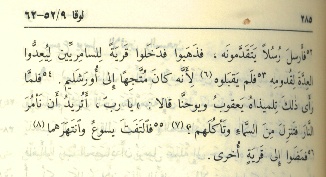 ٢٨٥ لوقا ٥٢/٩-٦٢
٥٢فأَرسلَ رُسُلاً يَتَقَدَّمونَه ، فذهَبوا فدَخلوا قَريَةً لِلسامِرِيّين لِيُعِدُّوا
العُدَّةَ لِقُدومِه ٥٣فلَم يَقبَلوه (٦) لأَنَّه كانَ مُتَّجِهًا إِلى أُورَشَليم . ٥٤فلَمَّا
رأَى ذٰلك تِلميذاهُ يَعقوبُ ويوحَنَّا قالا : «يا ربّ ، أَتُريدُ أَن نَأمُرَ
النَّارَ فتَنزِلَ مِنَ السَّماءِ وتَأكُلَهم ؟» (٧) ٥٥فالتَفَتَ يسوعُ وانتَهَرَهما (٨)
٥٦فمَضَوا إِلى قَريَةٍ أُخرى .